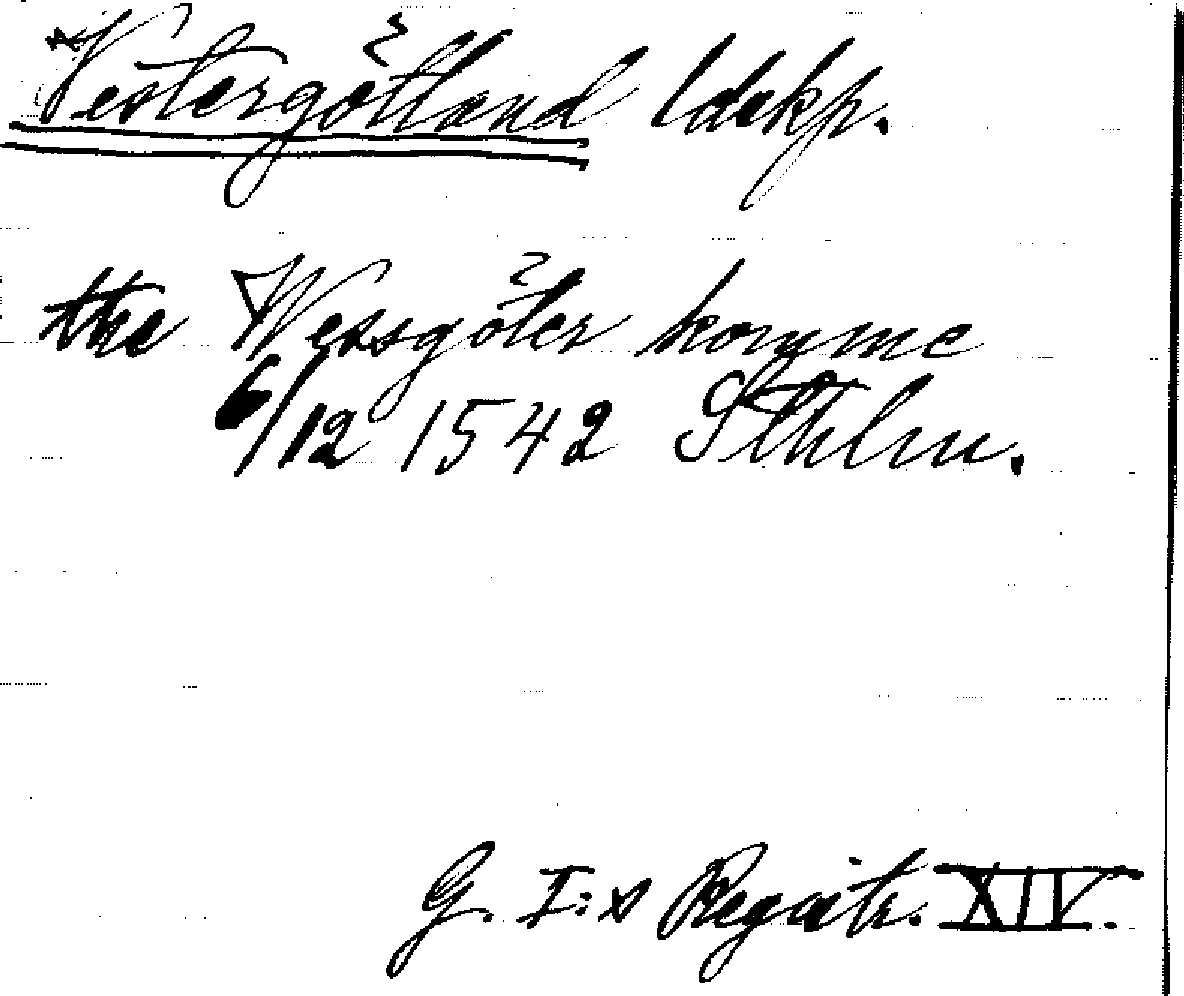 *Vestergötland ldskp.
the Wessgöter komme
6/12 1542 Sthlm.
G. I:s Registr. XIV.